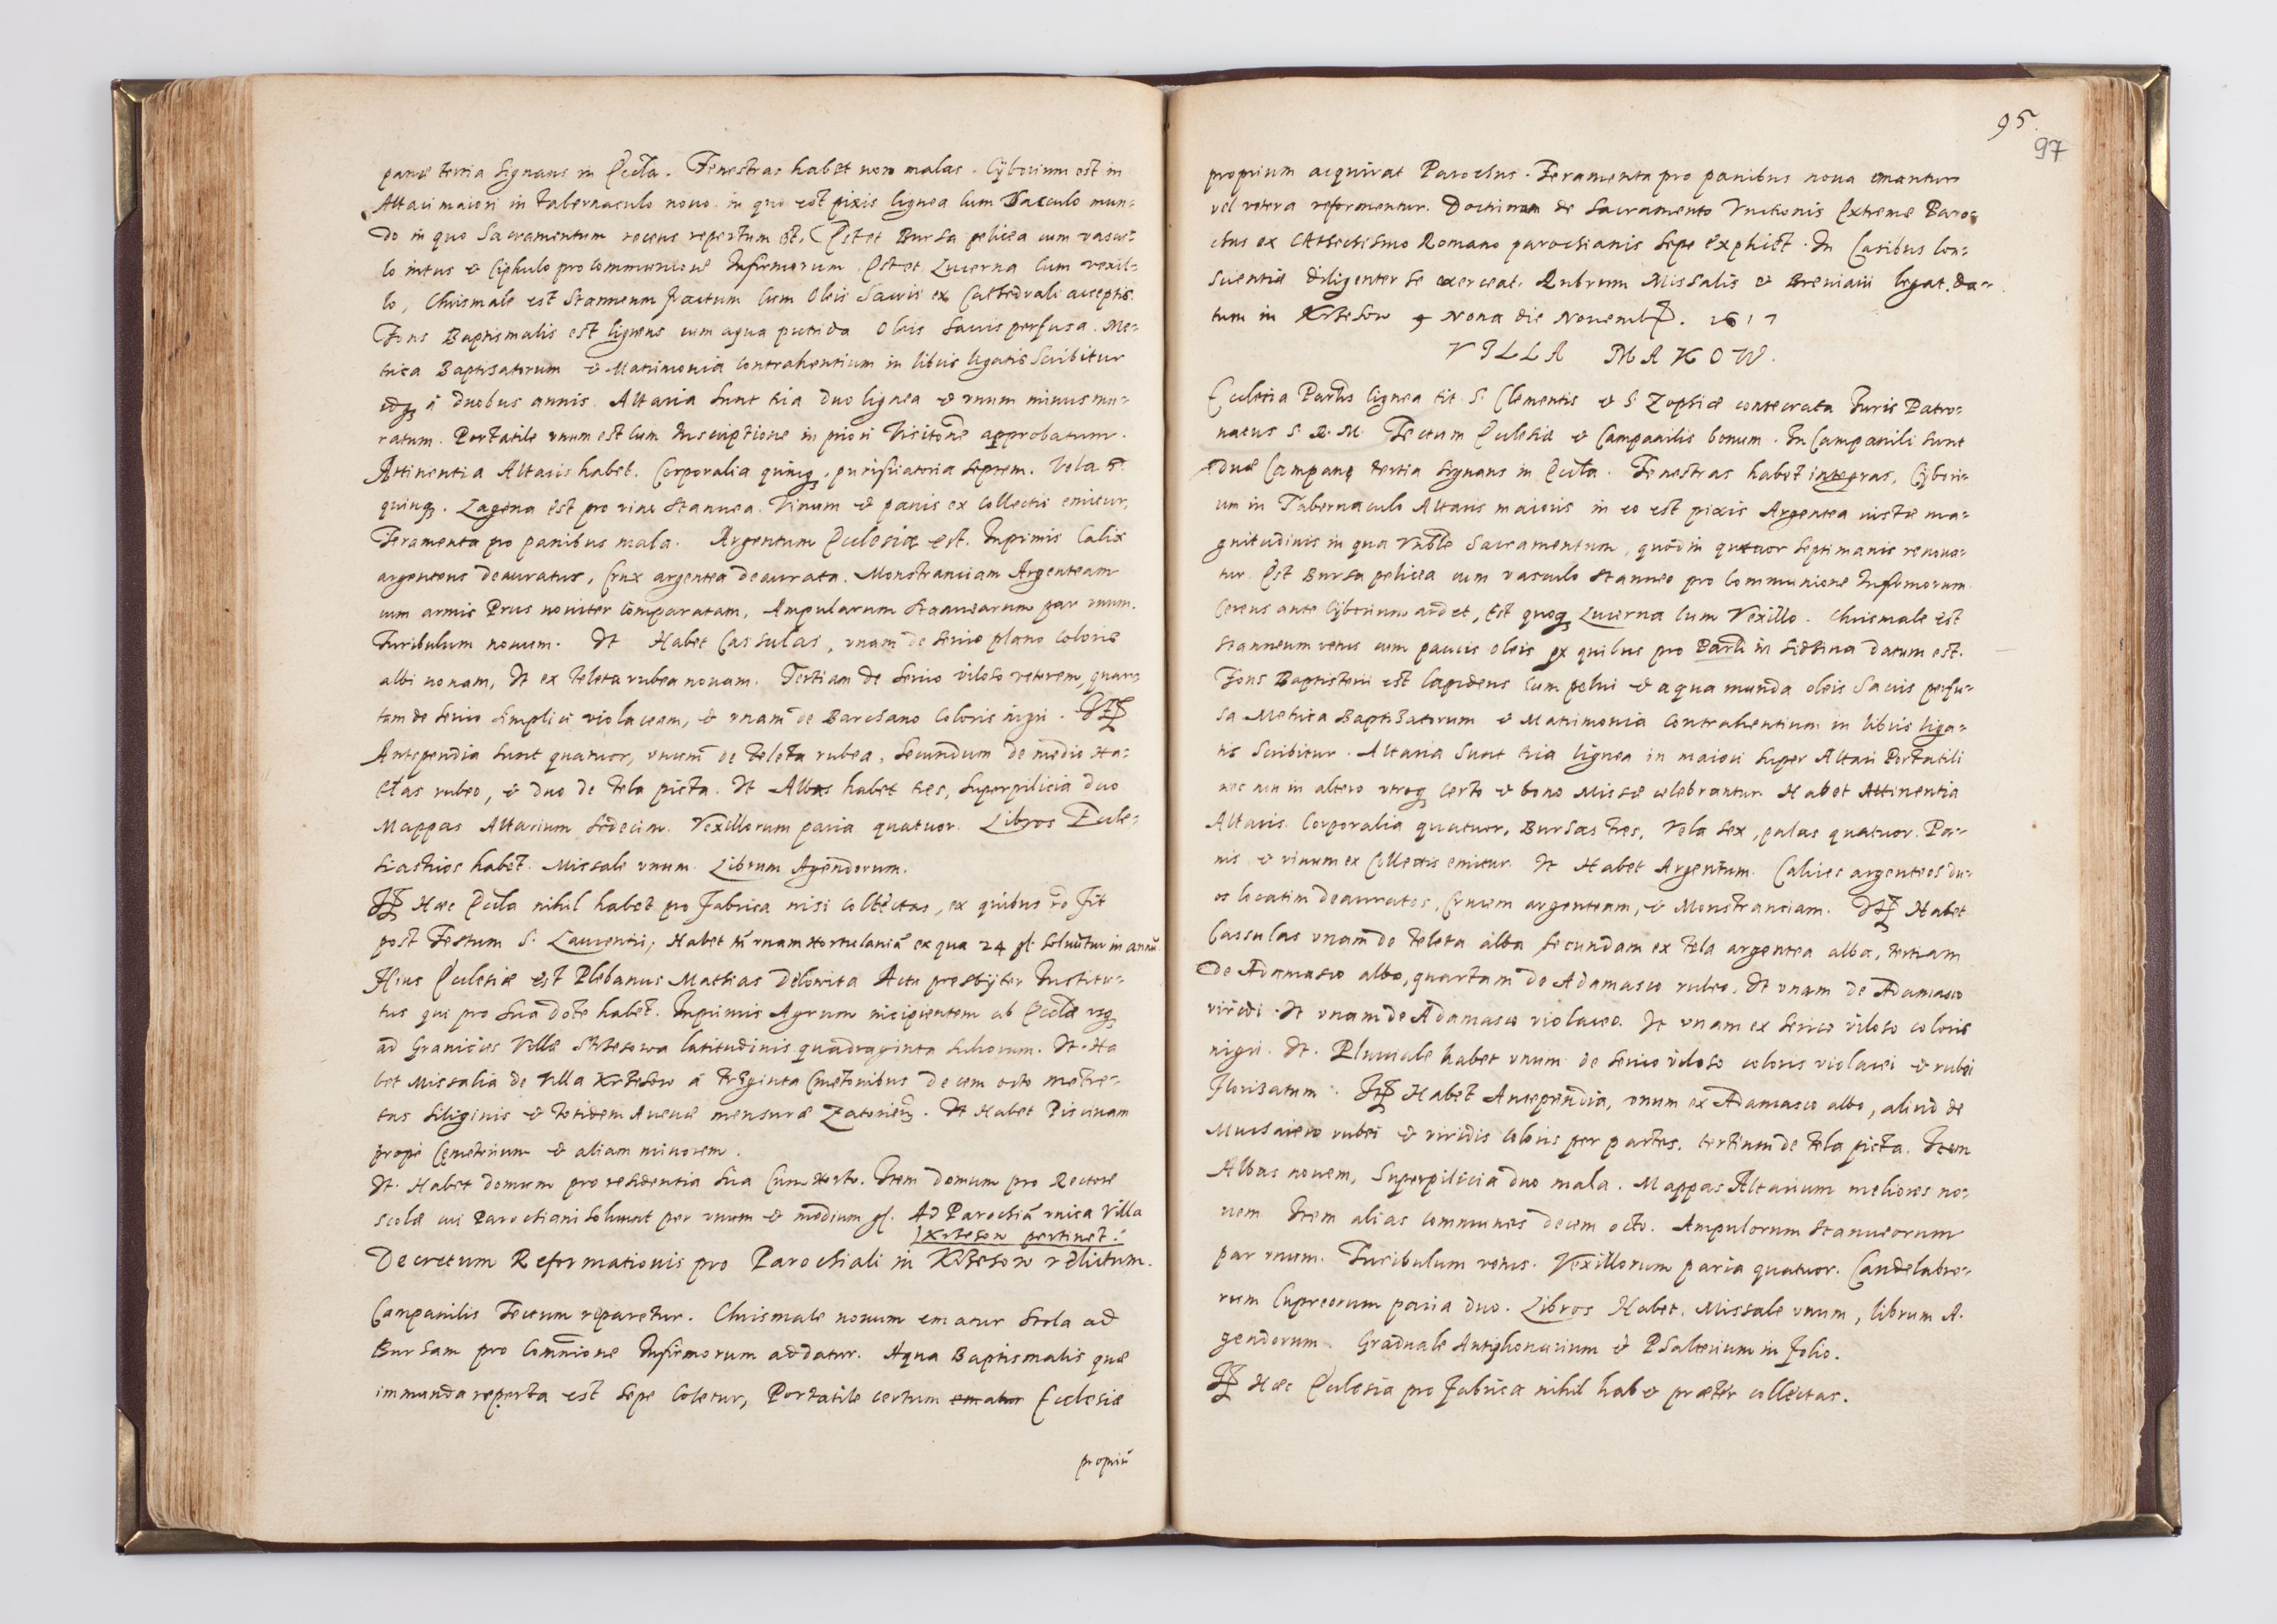 panæ tertia signans in Eccla. Fenestras habet non malas. Cyborium est in
Altari maiori in tabernaculo nouo. in quo est pixis lignea cum Sacculo mun-
do in quo Sacramentum recens repertum est. Est et Bursa pelicea cum vascu-
lo intus & Ciphulo pro Communione Infirmorum. Est et Lucerna cum vexil-
lo, Chrismale est Stanneum fractum cum Oleis Sacris ex Cathedrali acceptis.
Fons Baptismalis est ligneus cum aqua putrida Oleis Sacris perfusa. Me-
trica Baptisatorum & Matrimonia Contrahentium in libris ligatis Scribitur
à duobus annis. Altaria Sunt tria duo lignea & vnum minus mu-
ratum. Portatile vnum est cum Inscriptione in priori Visitone approbatum.
Attinentia Altaris habet. Corporalia quinq, purificatoria Septem. Vela
quinq. Lagena est pro vino stannea. Vinum & panis ex Collectis emitur,
Feramenta pro panibus mala. Argentum Ecclesiæ est. Inprimis Calix
argenteus deauratus, Crux argentea deaurata. Monstranciam Argenteam
cum armis Prus nouiter comparatam, Ampularum Stannearum par vnum.
Turibulum nouum. It Habet Cassulas, vnam de Serico plano Coloris
albi nouam, It ex teleta rubea nouam. Tertiam de Serico viloso veterem, quar-
tam de Serico Simplici violaceam, & vnam de Barchano Coloris nigri. It
Antependia Sunt quatuor, vnum de teleta rubea, Secundum de medio Ha-
rubeo, & duo de tela picta. It Albas habet tres, Superpilicia duo
Mappas Altarium Sedecim. Vexillorum paria quatuor. Libros Eccle-
siasticos habet. Missale vnum. Librum Agendorum.
It Hæc Eccla nihil habet pro fabrica nisi Collectas, ex quibus ro fit
post Festum S. Laurentii, Habet tn vnam Hortulaniã ex qua 24 gl. Soluũtur in annũ
Hius Ecclesiæ est Plebanus Mathias Delowita Actu presbyter Institu-
tus qui pro Sua dote habet. Inprimis Agrum incipientem ab Eccla vsq
ad Granicies Villæ latitudinis quadraginta Sulcorum. It. Ha
bet Missalia de Villa Krzesow à trẽginta Cmetonibus decem octo metre-
tas Siliginis & totidem Auenæ mensuræ Zatorien. It Habet Piscinam
prope Cemeterium & aliam minorem.
It. Habet domum pro residentia Sua Cum Horto. Item domum pro Rectore
scolæ cui Parochiani Soluunt per vnum & medium gl. Ad Parochiã vnica Villa
Krzesow pertinet.
Decretum Reformationis pro Parochiali in Krzesow relictum.
Campanilis Tectum reparetur. Chrismale nouum ematur Stola ad
Bursam pro Commnione Infirmorum addatur. Aqua Baptismalis quæ
immunda reperta est Sepe Coletur, Portatile certum ematur Ecclesiæ
propriũ
95.
97
proprium acquirat Parochus. Feramenta pro panibus noua emantur
vel vetera reformentur. Doctrinam de Sacramento Vnctionis Extremæ Paro-
chus ex Cathechismo Romano parochianis Sepe Explicet. In Casibus Con-
scientiæ diligenter Se exerceat. Rubrum Missalis & Breuiarii legat. Da-
tum in Krzesow 9 Nona die Nouemb. 1617
VILLA MAKOW.
Ecclesia Parlis lignea tit. S. Clementis & S. Zophiæ consecrata Iuris Patro-
natus S. R. M. Tectum Ecclesiæ & Campanilis bonum. In Campanili Sunt
duæ Campanę tertia Signans in Eccla. Fenestras habet integras, Cybori-
um in Tabernaculo Altaris maioris in eo est pixis Argentea iustæ ma-
gnitudinis in qua Vnble Sacramentum, quod in quatuor Septimanis renoua-
tur. Est Bursa pelicea cum vasculo stanneo pro Communione Infirmorum.
Cereus ante Cyborium ardet, Est quoq Lucerna cum Vexillo. Chrismale est
Stanneum vetus cum paucis oleis ex quibus pro Parli in Sidzina datum est.
Fons Baptisterii est lapideus cum pelui & aqua munda oleis Sacris perfu-
sa Metrica Baptisatorum & Matrimonia Contrahentium in libris liga-
tis Scribitur. Altaria Sunt tria lignea in maiori Super Altari Portatili
nec non in altero vtroq Certo & bono Missæ celebrantur. Habet Attinentia
Altaris. Corporalia quatuor, Bursas tres, Vela Sex, palas quatuor. Pa-
nis & vinum ex Collectis emitur. It Habet Argentum. Calices argenteos du-
os locatim deauratos, Crucem argenteam, & Monstranciam. It Habet
Cassulas vnam de teleta alba Secundam ex tela argentea alba, tertiam
de Adamasco albo, quartam de Adamasco rubeo. It vnam de Adamasco
viridi. It vnam de Adamasco violaceo. It vnam ex Serico viloso coloris
nigri. It. Pluuiale habet vnum de Serico viloso coloris violacei & rubei
florisatum. It Habet Antependia, vnum ex Adamasco albo, aliud de
rubei & viridis Coloris per partes. tertium de tela picta. Item
Albas nouem, Superpilicia duo mala. Mappas Altarium meliores no-
uem Item alias Communes decem octo. Ampulorum Stanneorum
par vnum. Turibulum vetus. Vexillorum paria quatuor. Candelabro-
rum Cupreorum paria duo. Libros Habet. Missale vnum, librum A-
gendorum. Graduale Antiphonarium & Psalterium in folio.
It Hæc Ecclesia pro fabrica nihil hab& præter collectas.